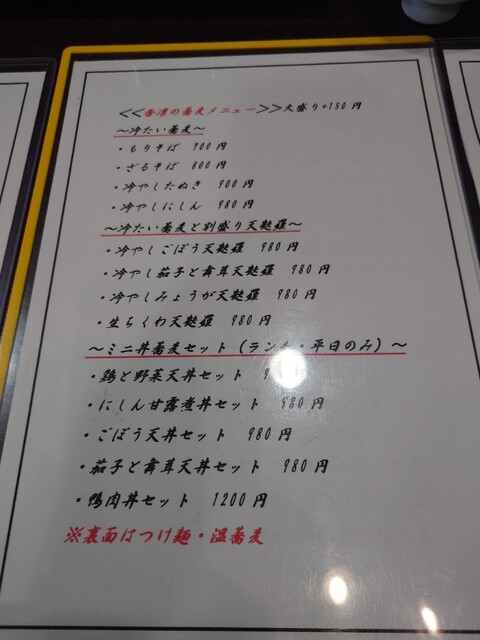 <<香凛の蕎麦メニュー>>大盛り+150円
～冷たい蕎麦～
・もりそば 700円
・ざるそば 800円
・冷やしたぬき 900円
・冷やしにしん 980円
～冷たい蕎麦と別盛り天麩羅～
・冷やしごぼう天麩羅 980円
・冷やし茄子と舞茸天麩羅 980円
・冷やしみょうが天麩羅 980円
・生ちくわ天麩羅 980円
～ミニ丼蕎麦セット(ランチ・平日のみ)～
・鶏と野菜天丼セット
・にしん甘露煮丼セット 980円
・ごぼう天丼セット 980円
・茄子と舞茸天丼セット 980円
・鴨肉丼セット 1200円
※裏面はつけ麺・温蕎麦